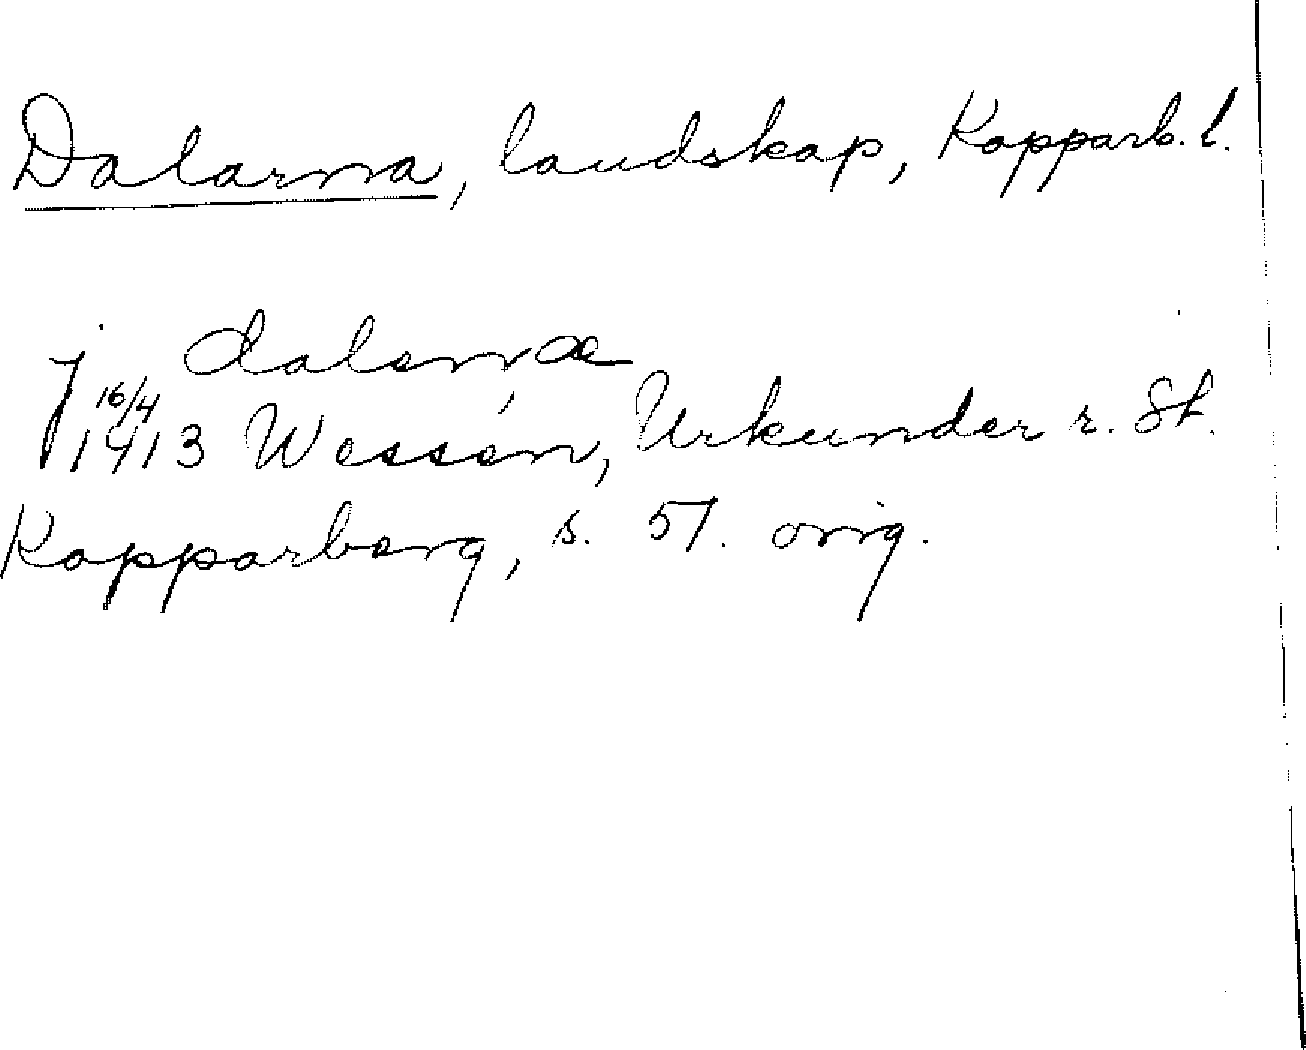 Dalarna, landskap, Kopparb. l.
j dalernæ
16/4
1413 Wessén, Urkunder r. St.
Kopparberg, s. 57. orig.